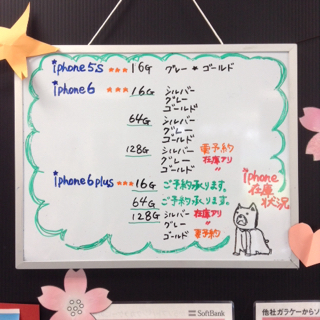 iphone5s ★★★ 16G グレー ★ ゴールド
iphone6 ★★★ 16G シルバー
グレー
ゴールド
64G シルバー
グレー
ゴールド
128G シルバー 要予約
グレー 在庫アリ
ゴールド 〃
iphone6plus ★★★ 16G ご予約承ります。
64G ご予約承ります。
128G シルバー 在庫アリ
グレー 〃
ゴールド 要予約
iphone
在庫
状況
SoftBank
他社ガラケーからソ